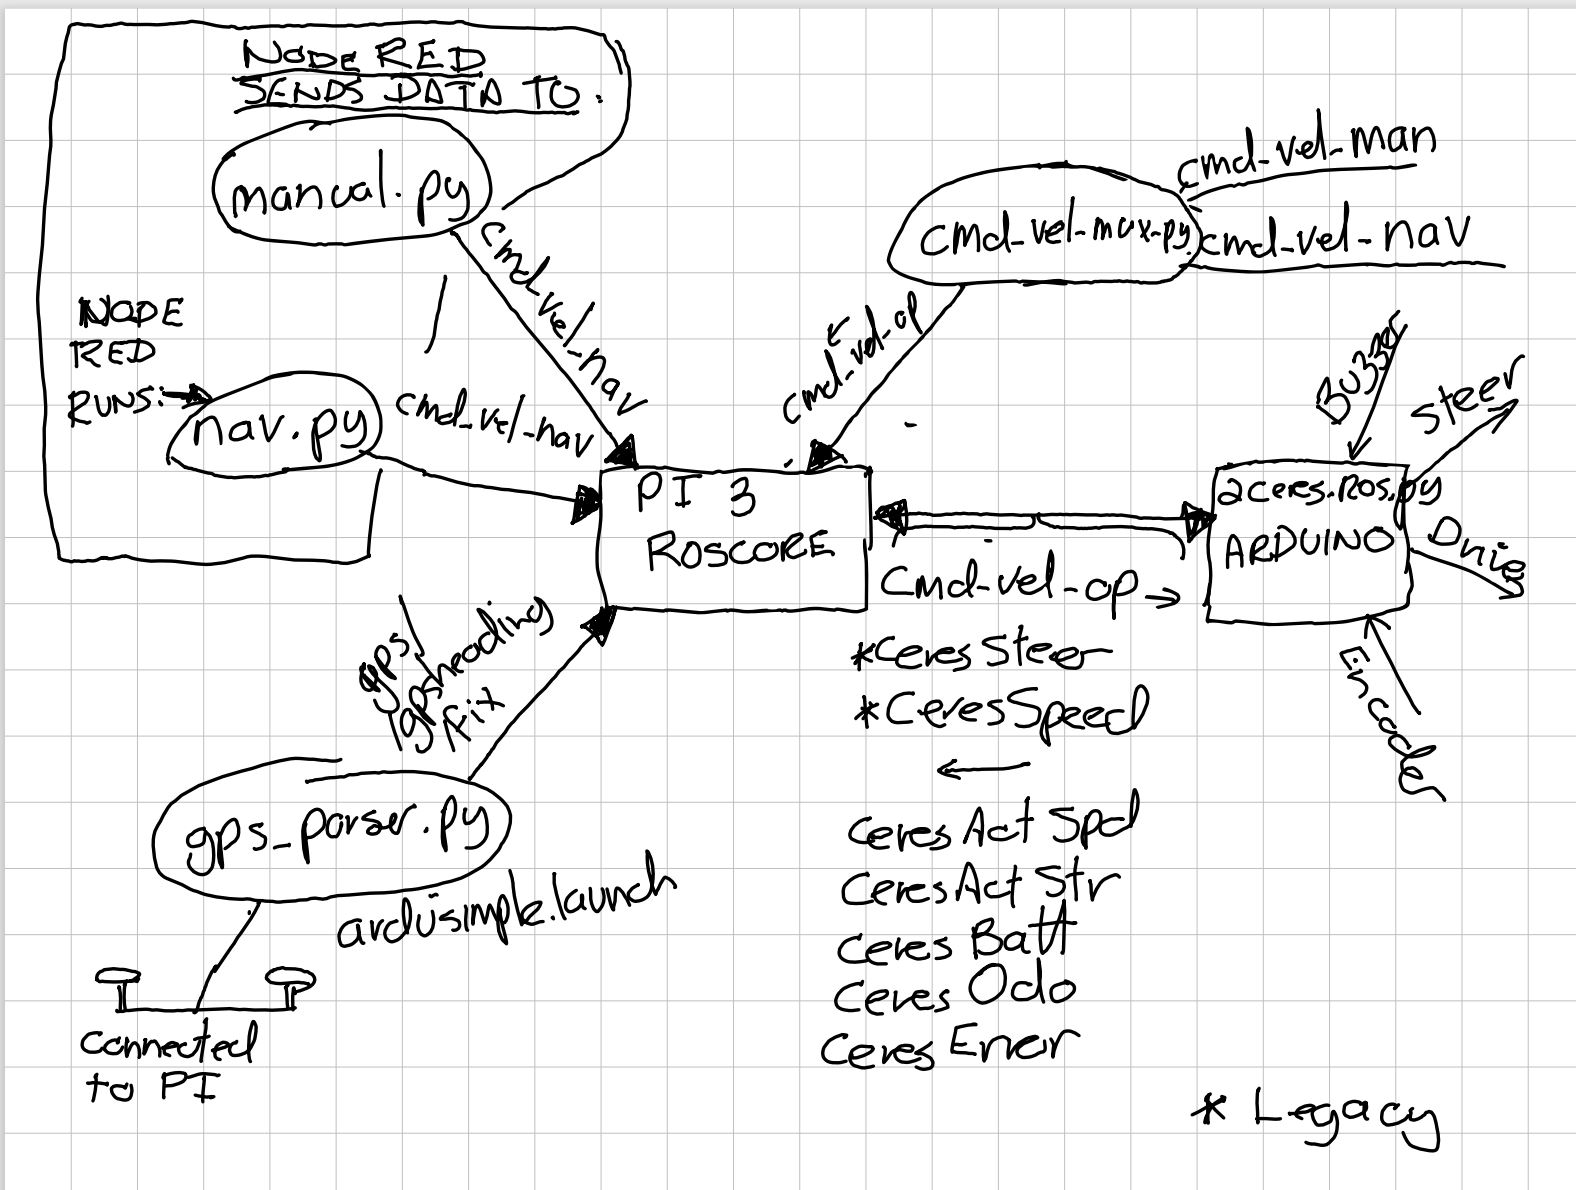 NODE RED
SENDS DATA TO:
manual.py
cmd_vel_nav
NODE
RED
RUNS:
nav.py
cmd_vel_nav
cmd_vel_man
cmd_vel_mux.py
cmd_vel_nav
cmd_vel_op
Buzzer
Steer
Drive
Encoder
PI 3
ROSCORE
2ceres.Ros.py
ARDUINO
Cmd_vel_op →
*Ceres Steer
*Ceres Speed
←
Ceres Act Spd
Ceres Act Str
Ceres Batt
Ceres Odo
Ceres Error
gps/
gpsheading
/fix
gps_parser.py
ardusimple.launch
connected
to PI
* Legacy